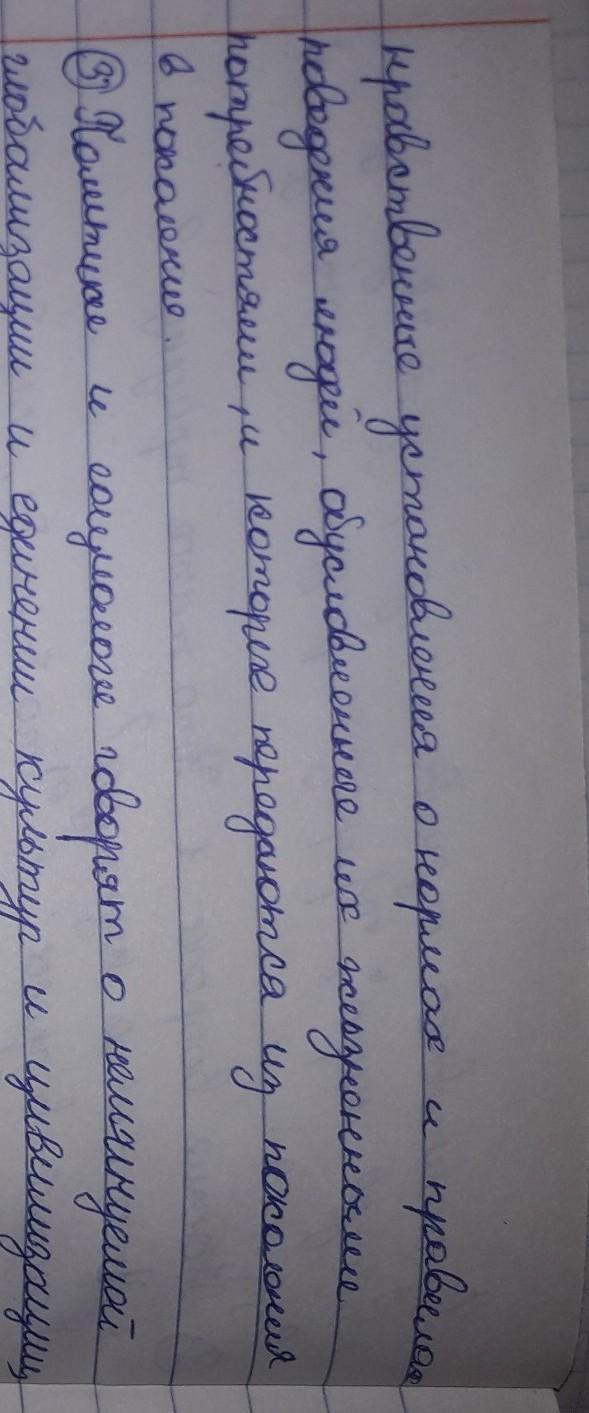 нравственные установления о нормах и правилах
поведения людей, обусловленные их жизненными
потребностями, и которые передаются из поколения
в поколение.
3) Политики и социологи говорят о неминуемой
глобализации и единении культур и цивилизации,